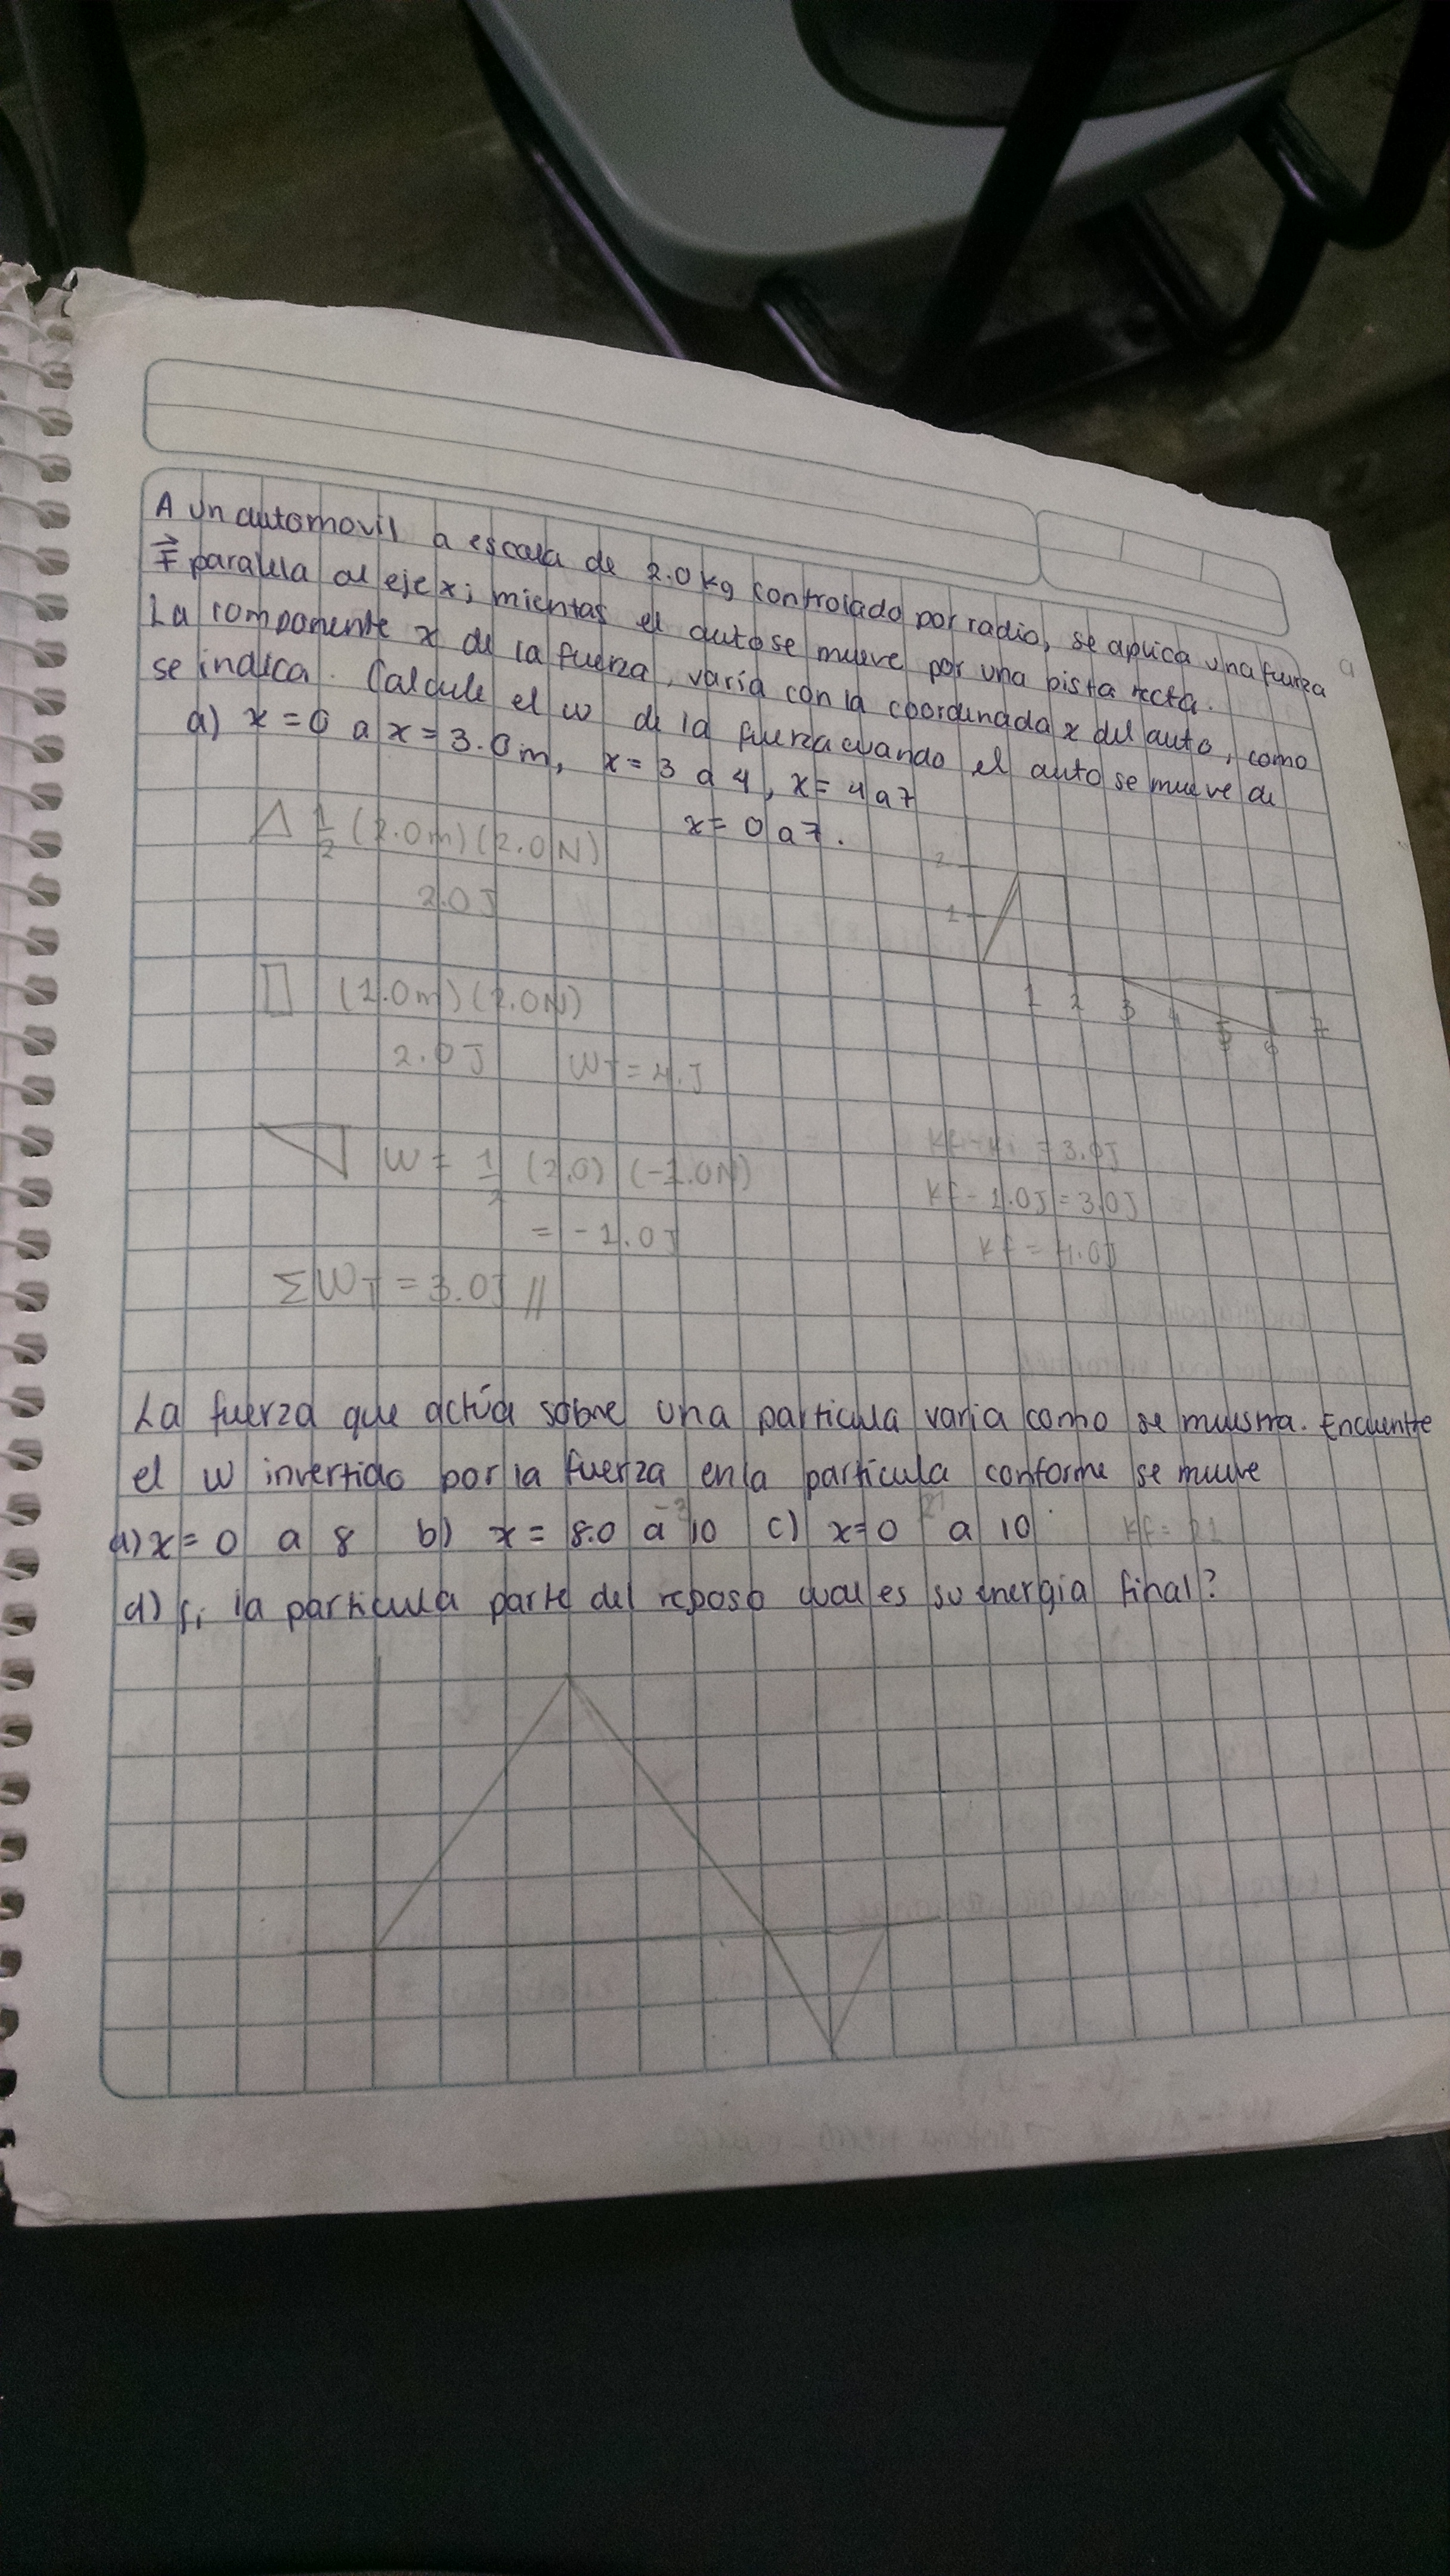 A un automovil a escala de 2.0 kg controlado por radio, se aplica una fuerza
F paralela al eje x; mientas el auto se mueve por una pista recta.
La componente x de la fuerza, varía con la coordenada x del auto, como
se indica. Calcule el w de la fuerza cuando el auto se mueve de
a) x = 0 a x = 3.0 m, x = 3 a 4, x = 4 a 7
x = 0 a 7.
1/2 (2.0m)(2.0N)
2.0J
2
1
1 2 3 4 5 6 7
(1.0m)(2.0N)
2.0J WT = 4.J
W = 1/2 (2.0) (-1.0N)
= -1.0J
Kf - Ki = 3.0J
Kf - 1.0J = 3.0J
Kf = 4.0J
ΣWT = 3.0J //
La fuerza que actúa sobre una particula varia como se muestra. Encuentre
el w invertido por la fuerza en la partícula conforme se mueve
a) x = 0 a 8 b) x = 8.0 a 10 c) x = 0 a 10 Kf = 21
-3 21
d) si la particula parte del reposo cual es su energia final?